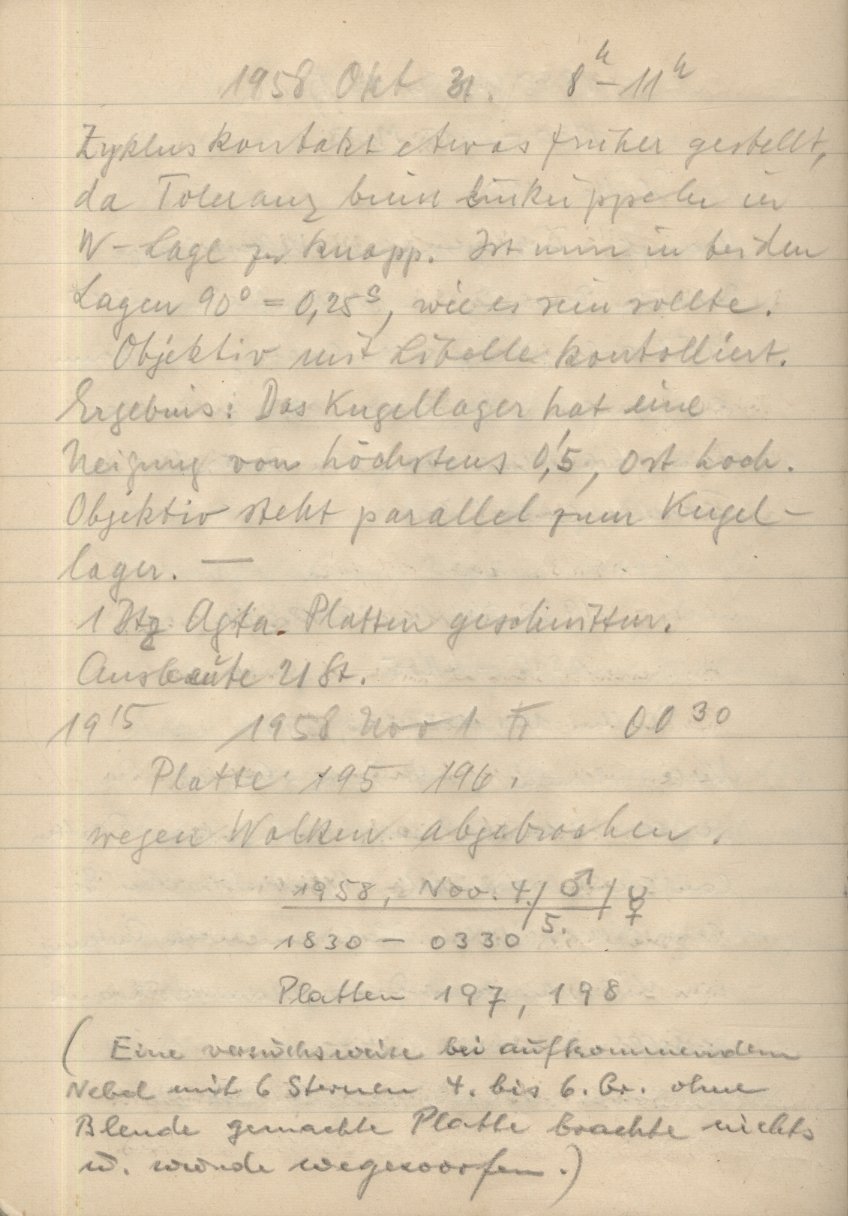 1958 Okt 31. 8ʰ–11ʰ
Zykluskontakt etwas früher gestellt,
da Toleranz beim Einkuppeln in
W-Lage zu knapp. Ist nun in beiden
Lagen 90° = 0,25ˢ, wie es sein sollte.
Objektiv mit Libelle kontrolliert.
Ergebnis: Das Kugellager hat eine
Neigung von höchstens 0,'5, Ost hoch.
Objektiv steht parallel zum Kugel-
lager. —
1 Dtz Agfa. Platten geschnitten.
Ausbeute 21 St.
19¹⁵ 1958 Nov 1 00³⁰
Platte 195 196.
wegen Wolken abgebrochen.
1958, Nov. 4./♂/5./☿
1830 – 0330
Platten 197, 198
(Eine versuchsweise bei aufkommendem
Nebel mit 6 Sternen 4. bis 6. Gr. ohne
Blende gemachte Platte brachte nichts
u. wurde weggeworfen.)